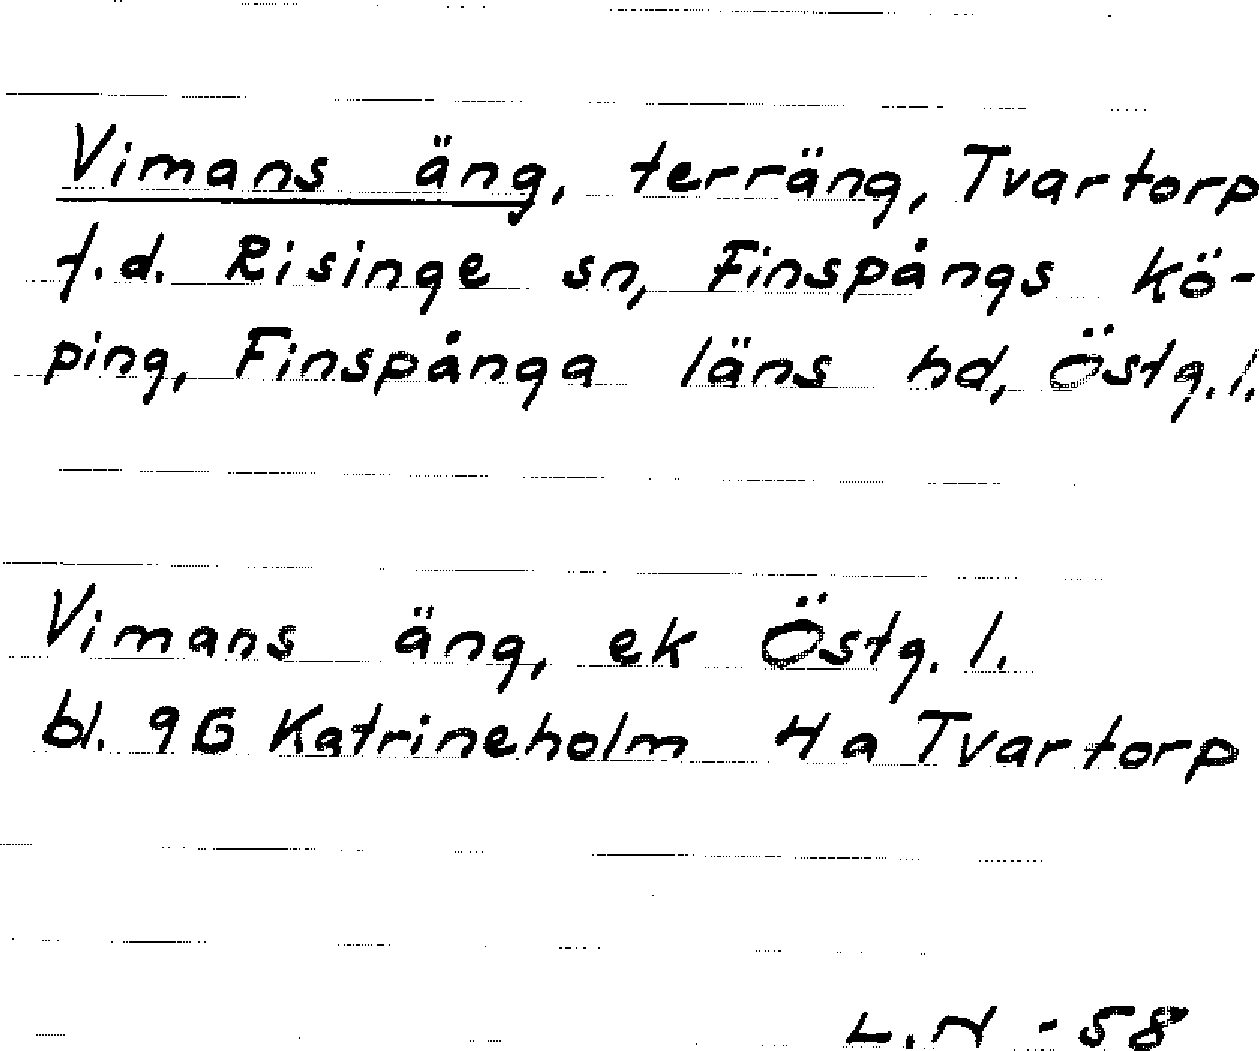 Vimans äng, terräng, Tvartorp
f.d. Risinge sn, Finspångs kö-
ping, Finspånga läns hd, Östg.l.
Vimans äng, ek Östg. l.
bl. 9G Katrineholm 4a Tvartorp
L.N - 58